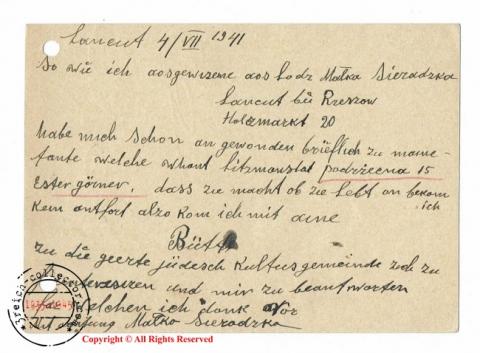 Lancut 4/VII 1941
So wie ich aosgewizene aos Lodz Małka Sieradzka
Lancut bü Rzeszow
Holzmarkt 20
habe mich schon an gewonden brieflich zu maine
tante welche whant Litzmanstat podrzeczna 15
Ester görner, dass zu macht ob zie Lebt on bekom
ich
kein antfort alzo kom ich mit aine
Bütt
zu die geerte jüdesch Kultusgemeinde zich zu
und mir zu beantworten
welchen ich dank Vor
Małka Sieradzka
3reich-collector
Copyright © All Rights Reserved